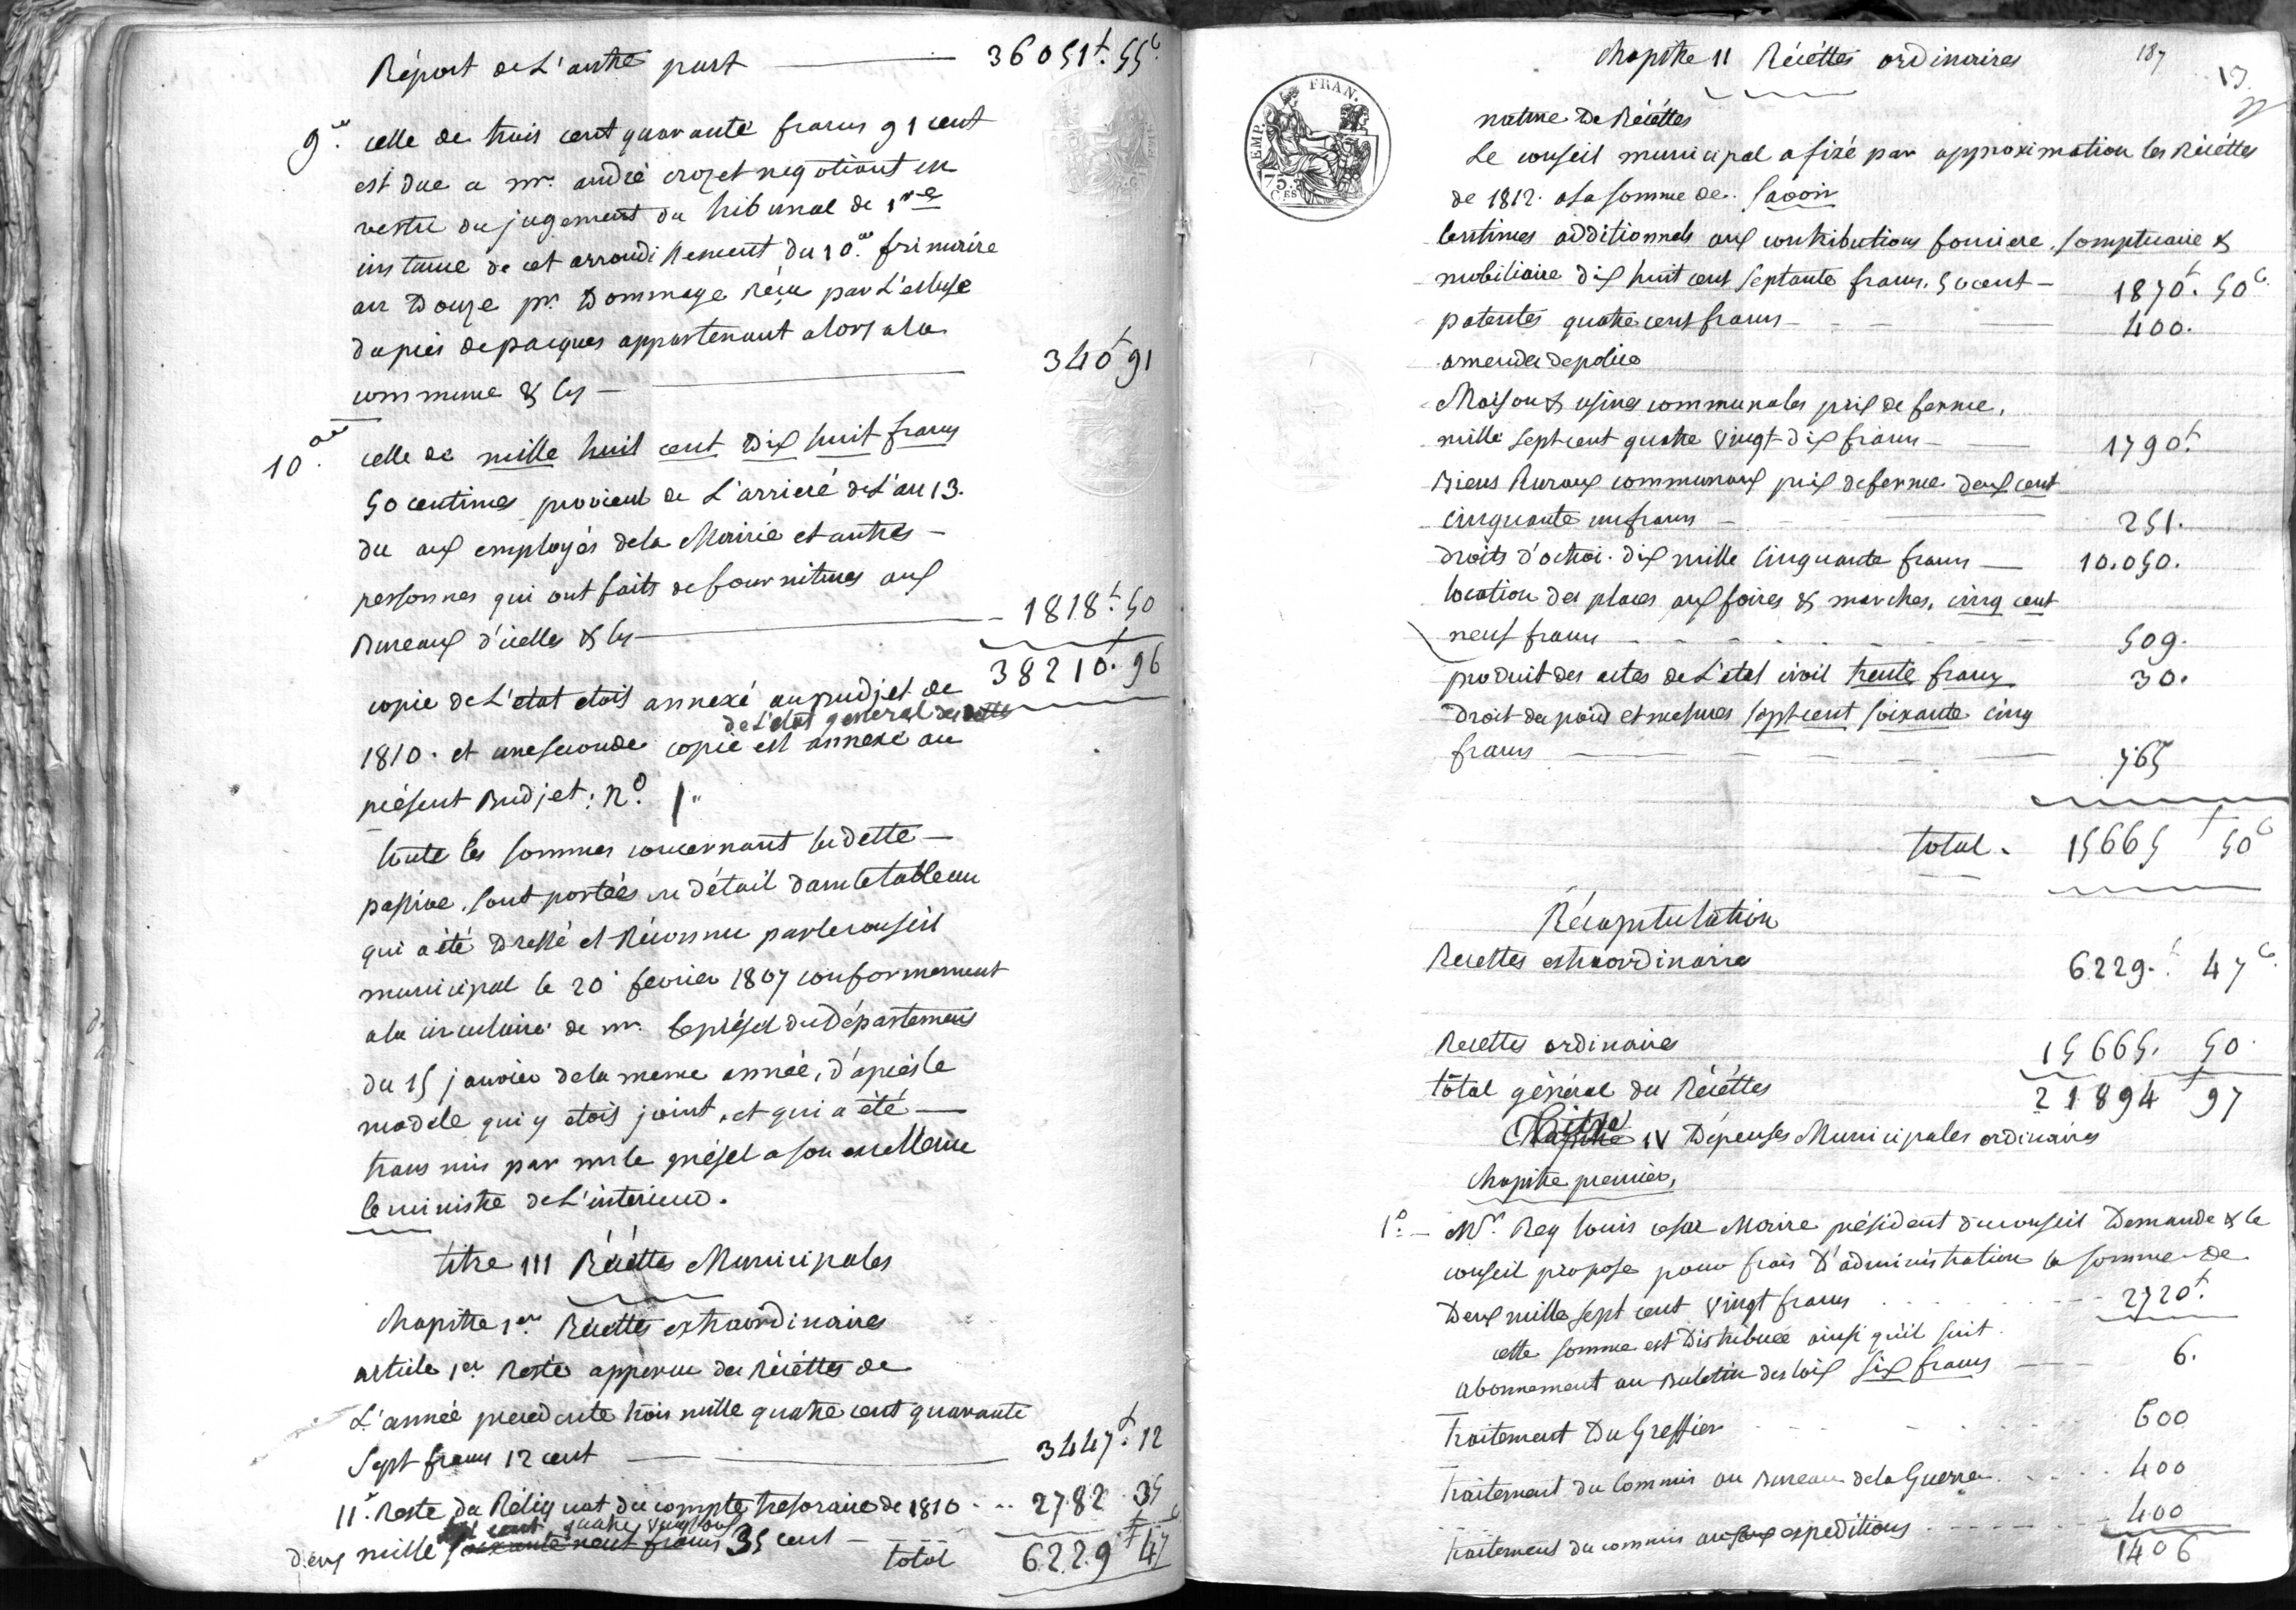 Réport de L'autre part 36051ᶠ. 55ᶜ
9.ᵉ celle de trois cent quarante francs 91 cent
est due a mr. andré crozet negotiant en
vertu du jugement du tribunal de 1ʳᵉ
instance de cet arrondissement du 10.ᵉ frimaire
an Douze pr. Dommage reçu par L'ecluse
du pies de pacques appartenant alors a la
commune & cy — 340ᶠ 91
10.ᵉ celle de mille huit cent dix huit francs
50 centimes provient de L'arrieré de L'an 13.
du aux employés de la Mairie et autres —
personnes qui ont faits de fournitures aux
Bureaux d'icelle & cy — 1818ᶠ 50
38210ᶠ. 96
copie de L'etat etois annexé au budjet de
de L'etat general des dettes
1810. et une seconde copie est annexé au
présent Budjet: n.º 1.
toute les sommes concernant la dette —
passive. sont portées en détail dans le tableau
qui a été Dressé et Réconnu par le conseil
municipal le 20 fevrier 1807 conformement
a la circulaire de mr. le préfet du Département
du 15 janvier de la meme année, d'après le
modele qui y etois joint, et qui a été —
transmis par mr le préfet a son excellence
le ministre de L'interieur.
titre III Récéttes Municipales
chapitre 1er. Récettes extraordinaires
article 1er Reste apperçu des Récéttes de
L'année precedente trois mille quatre cent quarante
sept francs 12 cent — 3447ᶠ. 12
11. Reste du Réliquat du compte tresoraire de 1810 . .. 2782 35
sept cent quatre vingt deux
deux mille soixante neuf francs 35 cent — total 6229ᶠ 47ᶜ
chapitre 11 Récéttes ordinaires 187
EMP. FRAN.
75. CES
nature de Récéttes
Le conseil municipal a fixé par approximation les Récéttes
de 1812. a la somme de. Savoir
Centimes additionnels aux contributions fonciere, somptuaire &
mobiliaire dix huit cent septante francs. 50 cent — 1870ᶠ. 50ᶜ
patentes quatre cent francs — 400.
amendes de police
Maisons & usines communales prix de ferme,
mille sept cent quatre vingt dix francs — 1790ᶠ
Biens Ruraux communaux prix de ferme deux cent
cinquante un francs — 251.
droits d'octroi. dix mille cinquante francs — 10.050.
location des places aux foires & marches, cinq cent
neuf francs — 509.
produit des actes de L'etat civil trente francs 30.
Droit de poid et mesures sept cent soixante cinq
francs — 765
total. 15665ᶠ 50ᶜ
Récapitulation
Recettes extraordinaires 6229.ᶠ 47ᶜ
Recettes ordinaires 15665. 50
total général du Récéttes 21894ᶠ 97
Titre IV Dépenses Municipales ordinaires
chapitre premier,
1º.— Mr. Rey Louis cesar Maire président du conseil Demande & le
conseil propose pour frais D'administration la somme de
Deux mille sept cent vingt francs 2720ᶠ.
cette somme est Distribuée ainsi qu'il suit.
abonnement au Buletin des loix six francs — 6.
traitement Du Greffier 600
traitement du Commis au Bureau de la Guerre. 400
traitement du commis aux expeditions 400
1406